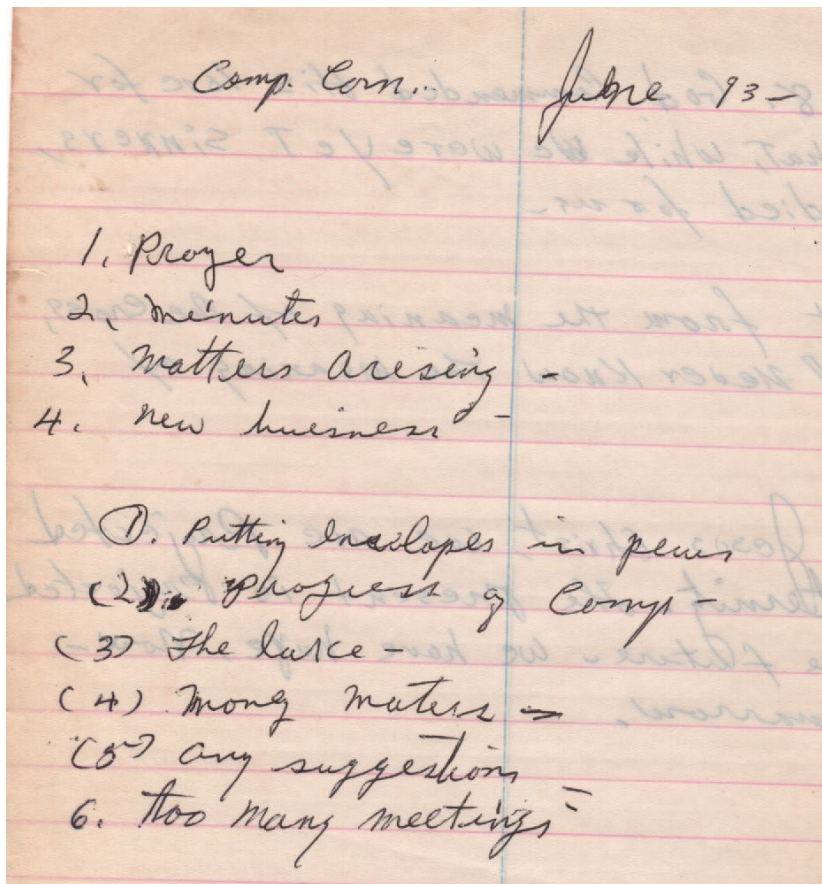 Comp. Com... June 93 -
1. Prayer
2. minutes
3. Matters arising -
4. New business -
1. Putting envelopes in pews
(2). Progress of Comp -
(3) The
(4) Money maters -
(5) any suggestions -
6. too many meetings -